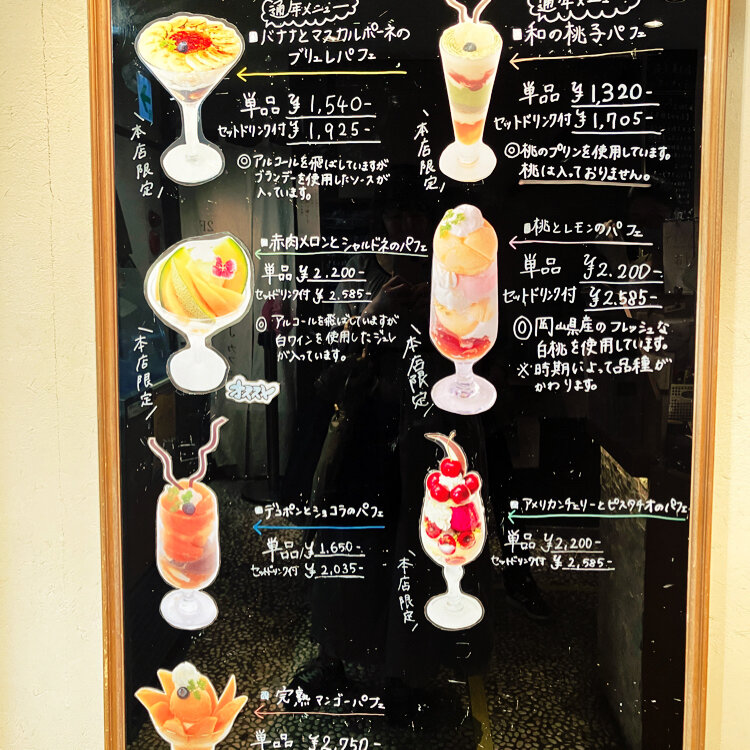 通年メニュー
■バナナとマスカルポーネの
ブリュレパフェ
単品 ¥1,540-
セットドリンク付 ¥1,925-
◎アルコールを飛ばしていますが
ブランデーを使用したソースが
入っています。
本店限定
通年メニュー
■和の桃子パフェ
単品 ¥1,320-
セットドリンク付 ¥1,705-
◎桃のプリンを使用しています。
桃は入っておりません。
本店限定
■赤肉メロンとシャルドネのパフェ
単品 ¥2.200-
セットドリンク付 ¥2.585-
◎アルコールを飛ばしていますが
白ワインを使用したジュレ
が入っています。
本店限定
オススメ
■桃とレモンのパフェ
単品 ¥2.200-
セットドリンク付 ¥2.585-
◎岡山県産のフレッシュな
白桃を使用しています。
※時期によって品種が
かわります。
本店限定
■デコポンとショコラのパフェ
単品 ¥1.650-
セットドリンク付 ¥2,035-
■アメリカンチェリーとピスタチオのパフェ
単品 ¥2,200-
セットドリンク付 ¥2,585-
本店限定
■完熟マンゴーパフェ
単品 ¥2,750-